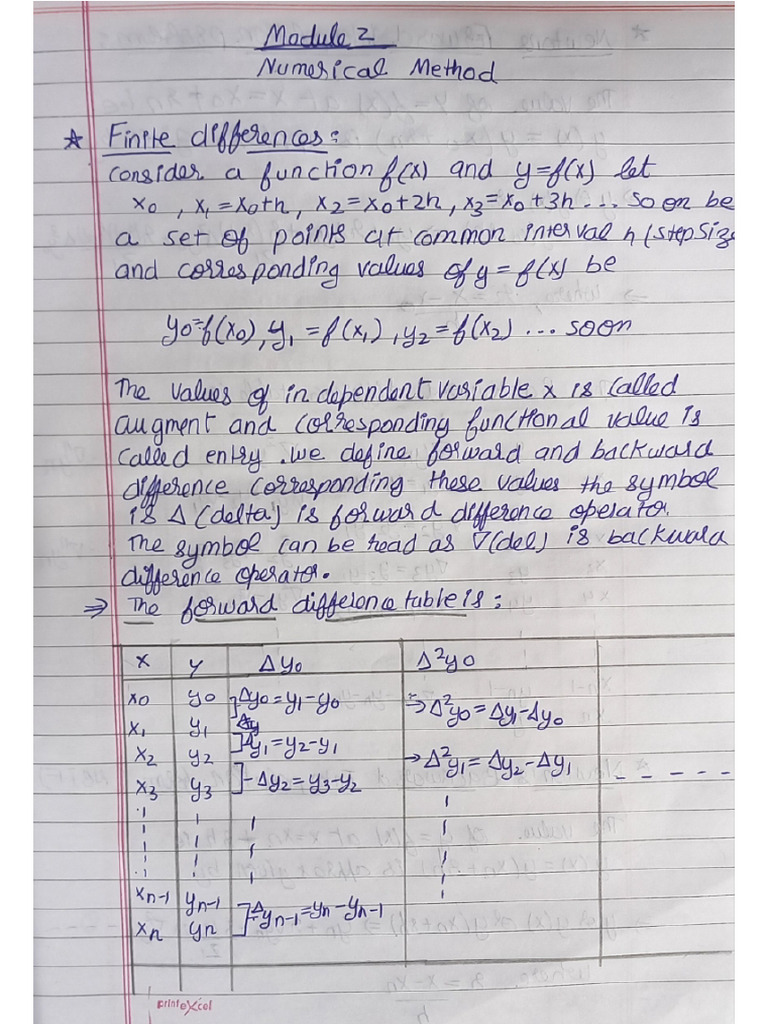 Module 2
Numerical Method
* Finite differences:
consider a function f(x) and y=f(x) let
x0 , x1=x0+h, x2=x0+2h, x3=x0+3h ... so on be
a set of points at common interval h (stepsize
and corresponding values of y=f(x) be
y0=f(x0), y1=f(x1), y2=f(x2) ... soon
The values of independent variable x is called
augment and corresponding functional value is
called entry . we define forward and backward
difference corresponding these values the symbol
is Δ (delta) is forward difference operator.
The symbol can be read as ∇(del) is backward
difference operator.
⇒ The forward difference table is:
x y Δy0 Δ²y0
x0 y0 Δy0=y1-y0 ⇒Δ²y0=Δy1-Δy0
x1 y1
x2 y2 Δy1=y2-y1 →Δ²y1=Δy2-Δy1
x3 y3 -Δy2=y3-y2 - - - - -
xn-1 yn-1 Δyn-1=yn-yn-1
xn yn
printexcel